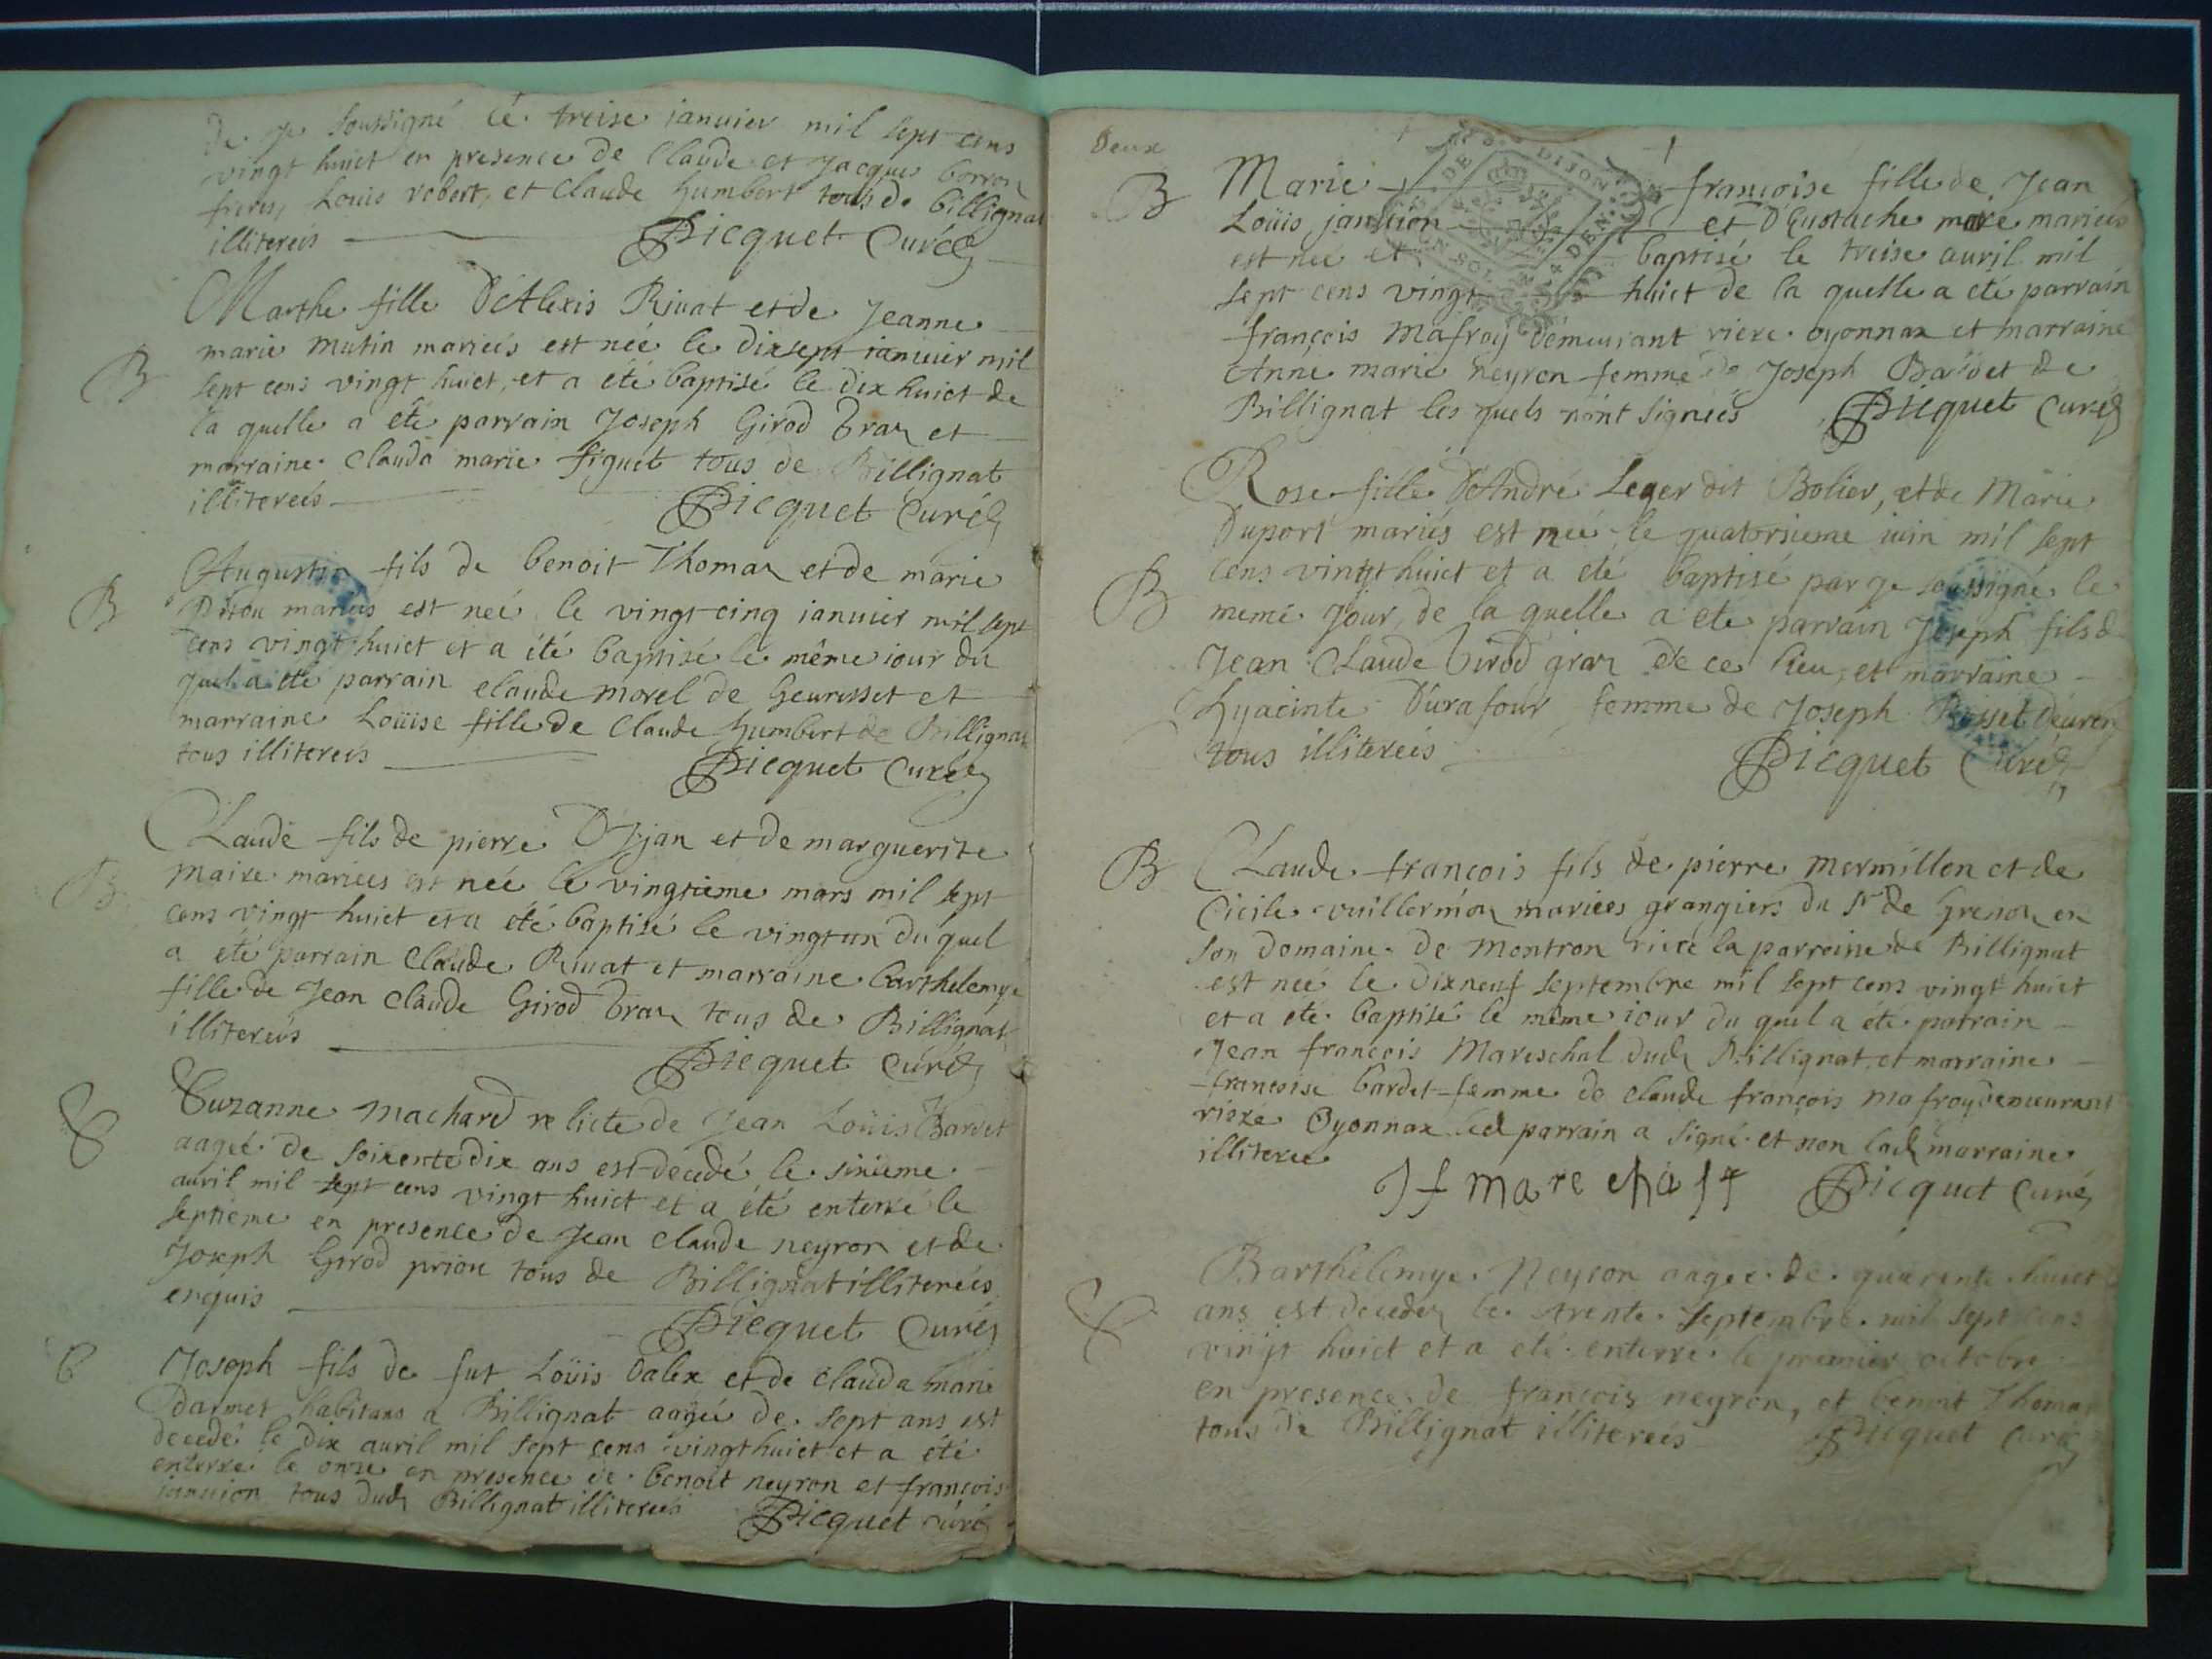 de je soussigné le treise ianuier mil sept cens
vingt huict en presence de Claude et Jacques borron
freres, Louis robert, et Claude humbert tous de billignat
illitereés Picquet Curé
Marthe fille D'Alexis Riuat et de Jeanne
marie mutin marieés est née le dixsept ianuier mil
B
sept cens vingt huict, et a été baptisé le dix huict de
la quelle a été parrain Joseph Girod Gran et
marraine Clauda marie figuet tous de Billignat
illitereés Picquet Curé
Augustin fils de benoit Thomas et de marie
B
mariés est neé le vingt cinq ianuier mil sept
cens vingt huict et a été baptisé le même iour du
quel a été parrain claude morel de heurisset et
marraine Loüise fille de Claude humbert de Billignat
tous illitereés Picquet Curé
Claude fils de pierre et de marguerite
B
maire marieés est neé le vingtieme mars mil sept
cens vingt huict et a été baptisé le vingt un du quel
a été parrain Claude Riuat et marraine barthelemye
fille de Jean claude Girod Gran tous de Billignat
illitereés
Picquet Curé
Suzanne machard relicte de Jean Loüis Bardet
aageé de soixente dix ans est décédé le sixieme
auril mil sept cens vingt huict et a été enterré le
septieme en presence de Jean Claude neyron et de
Joseph Girod prion tous de Billignat illitereés
enquis
Picquet Curé
Joseph fils de fut Loüis Dalex et de clauda marie
Darmet habitans a Billignat aagée de sept ans est
decedé le dix auril mil sept cens vingt huict et a été
enterré le onze en presence de benoit neyron et françois
ianuion tous dud Billignat illitereés Picquet Curé
Deux
B
Marie françoise fille de Jean
Loüis januion et D'Eustache maire marieés
est neé et baptisé le treise auril mil
sept cens vingt huict de la quelle a été parrain
françois mafroy démeurant riere oyonnax et marraine
Anne marie neyron femme de Joseph Bardet de
Billignat les quels n'ont signeés Picquet Curé
Rose fille D'André Leger dit Bolier, et de Marie
Duport mariés est née le quatorsieme iuin mil sept
B
cens vingt huict et a été baptisé par je soussigné le
meme Jour, de la quelle a été parrain Joseph fils de
Jean Claude Girod gran de ce lieu, et marraine
hyacinte Durafour femme de Joseph
tous illitereés
Picquet Curé
B
Claude françois fils de pierre mermillon et de
Cicile vuillermoz marieés grangiers du Sr de Grenon en
son domaine de montron riere la parroisse de Billignat
est neé le dixneuf septembre mil sept cens vingt huict
et a été baptisé le même iour du quel a été parrain
Jean françois Mareschal dud Billignat, et marraine
françoise bardet femme de claude françois mafroy demeurant
riere Oyonnax led parrain a signé et non lad marraine
illiteree
Jf marechalt Picquet Curé
Barthelemye Neyron aageé de quarente huict
ans est decedez le trente septembre mil sept cens
vingt huict et a été enterré le premier octobre
en presence de françois neyron, et benoit Thomas
tous de Billignat illitereés Picquet Curé